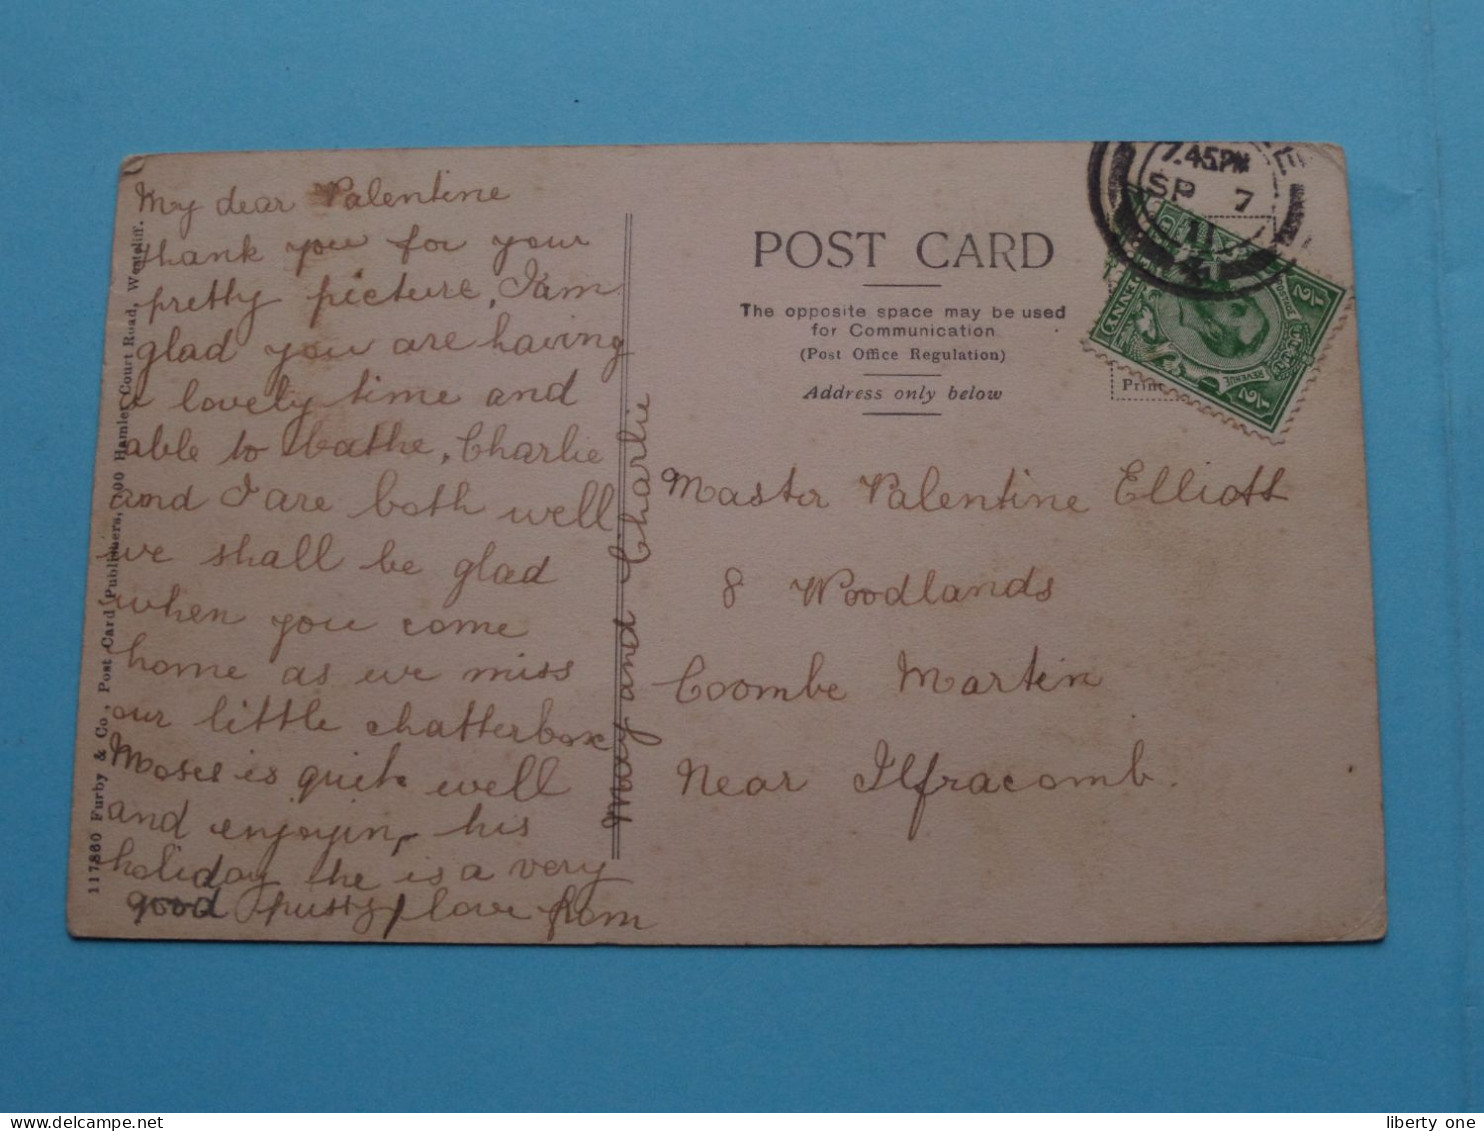 My dear Valentine
thank you for your
pretty picture, I am
glad you are having
a lovely time and
able to bathe, Charlie
and I are both well
we shall be glad
when you come
home as we miss
our little chatterbox
Moses is quite well
and enjoyin his
holiday he is a very
good pussy love from
May and Charlie
117860 Furby & Co., Post Card Publishers, 100 Hamlet Court Road, Westcliff.
POST CARD
The opposite space may be used
for Communication
(Post Office Regulation)
Address only below
7.45PM
SP 7
11
E
½
½
REVENUE
Prin
Master Valentine Elliott
8 Woodlands
Coombe Martin
Near Ilfracomb.
liberty one